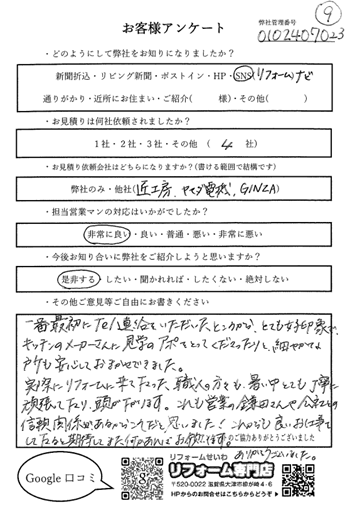 ⑨
お客様アンケート
弊社管理番号
0102407023
・どのようにして弊社をお知りになりましたか？
新聞折込・リビング新聞・ポストイン・HP・SNS(リフォームナビ
通りがかり・近所にお住まい・ご紹介(　　　様)・その他(　　　)
・お見積りは何社依頼されましたか？
1社・2社・3社・その他（　4　社）
・お見積り依頼会社はどちらになりますか？(書ける範囲で結構です)
弊社のみ・他社(匠工房、ヤマダ電機、GINZA)
・担当営業マンの対応はいかがでしたか？
非常に良い・良い・普通・悪い・非常に悪い
・今後お知り合いに弊社をご紹介しようと思いますか？
是非する・したい・聞かれれば・したくない・絶対しない
・その他ご意見等ご自由にお書きください
一番最初にTel連絡をいただいたところから、とても好印象で、
キッチンのメーカーさんに見学のアポをとってくださったりと、細やかで
とても安心しておまかせできました。
実際にリフォームに来て下さった、職人の方々も、暑い中とても丁寧に
頑張って下さり、頭が下がります。これも営業の鎌田さんや会社との
信頼関係があるからこそだと思いました！これからも良いお仕事を
して下さると期待してまた何かあればお願いします。
のご協力ありがとうございました
ありがとうございました。
Google 口コミ
リフォームせいわ
リフォーム専門店
〒520-0022 滋賀県大津市柳が崎4-6
HPからのお問合せはこちらからどうぞ